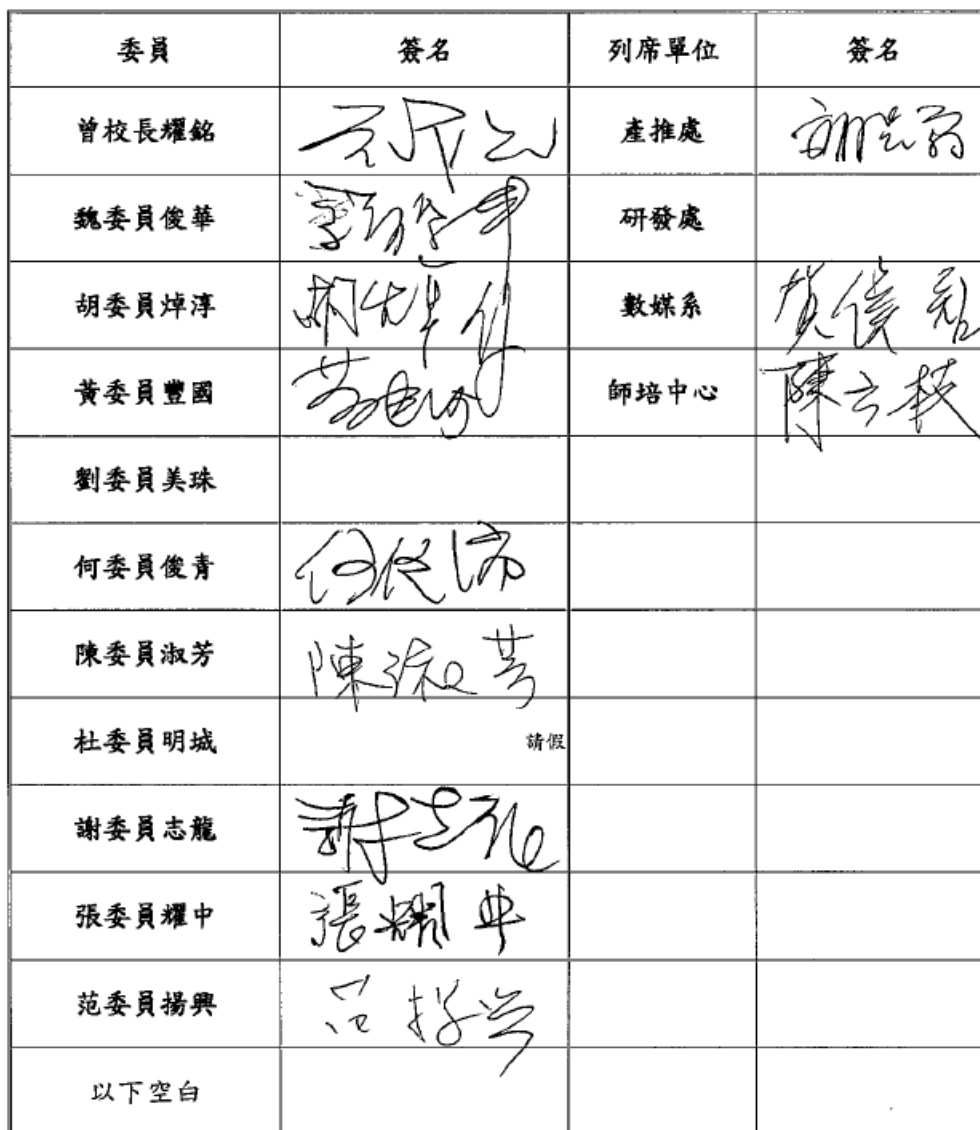 委員 簽名 列席單位 簽名
曾校長耀銘 產推處
魏委員俊華 研發處
胡委員焯淳 胡焯淳 數媒系
黃委員豐國 師培中心 陳
劉委員美珠
何委員俊青 何俊青
陳委員淑芳 陳淑芳
杜委員明城 請假
謝委員志龍 謝志龍
張委員耀中 張耀中
范委員揚興 范揚興
以下空白